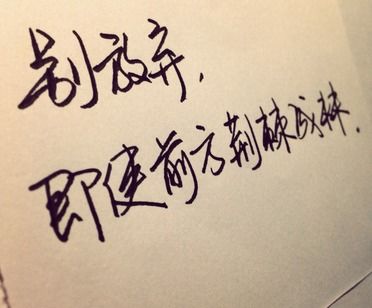 别放弃，
即使前方荆棘成林.